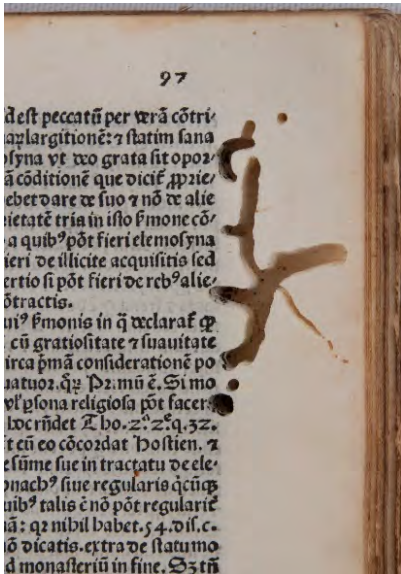 97
dest peccatū per verā cōtri⸗
largitionē: ⁊ statim sana
osyna vt deo grata sit opor⸗
ā cōditionē que dicit̄ ꝓprie⸗
ebet dare de suo ⁊ nō de alie
rietatē tria in isto ẜmone cō⸗
a quibꝰ pōt fieri elemosyna
ieri de illicite acquisitis sed
ertio si pōt fieri de rebꝰ alie⸗
ōtractis.
uiꝰ ẜmonis in q̄ declarat̄ ꝙ
cū gratiositate ⁊ suauitate
irca pͥmā considerationē po
uatuor. q̄ꝝ Pͥ.mū ē. Si mo
vl' ꝑsona religiosa pōt facer
hoc rn̄det Tho. 2.ᵃ 2.ᵉ q. 32.
t eū eo cōcordat Hostien. ⁊
e sūme sue in tractatu de ele⸗
onachꝰ siue regularis q̄cūqꝫ
uibꝰ talis ē nō pōt regularit̄
nā: qꝛ nihil habet. 54. dis. c.
nō dicatis. extra de statu mo
d monasteriū in fine. Sꝫ tn̄